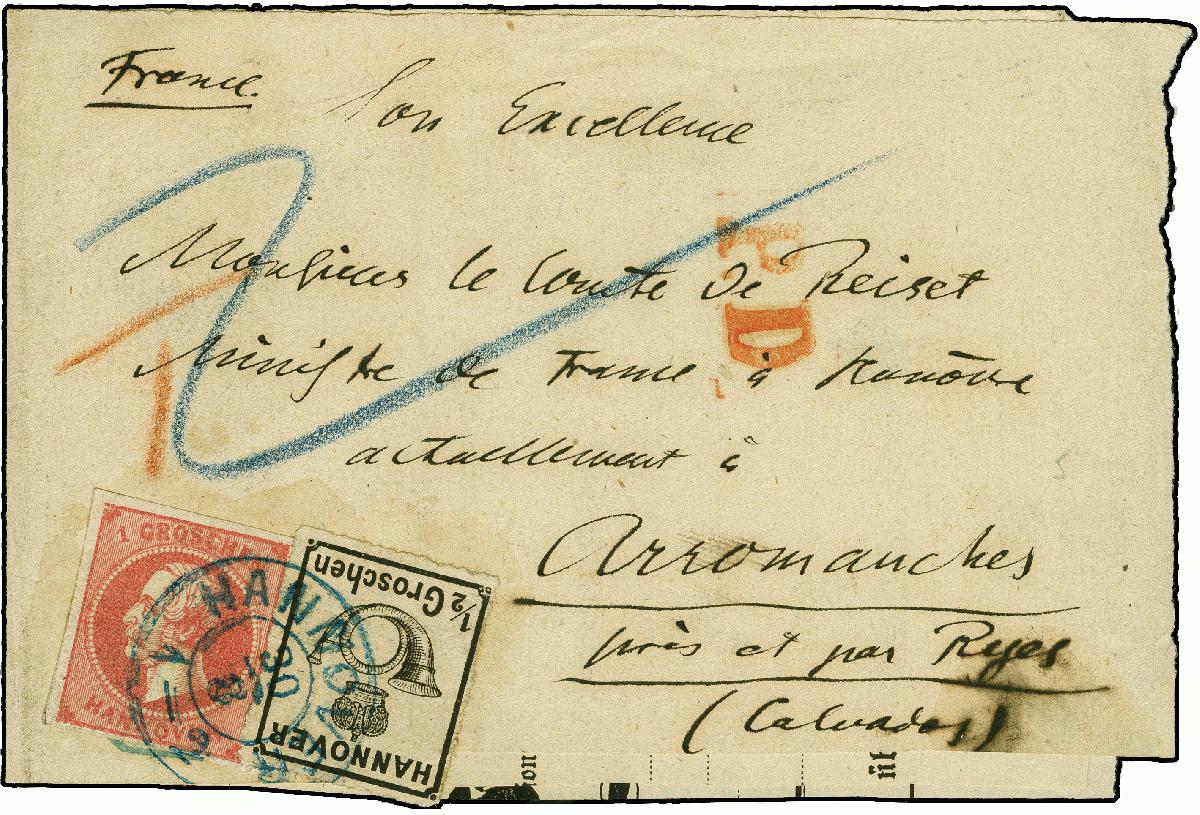 France.
Son Excellence
Monsieur le Comte de Reiset
Ministre de France à Hanōvre
actuellement à
Arromanches
près et par Ryes
(Calvados)
P D
1 GROSCHEN
HANNOVER
HANNOVER
1/2 Groschen
HANNOVER
ion